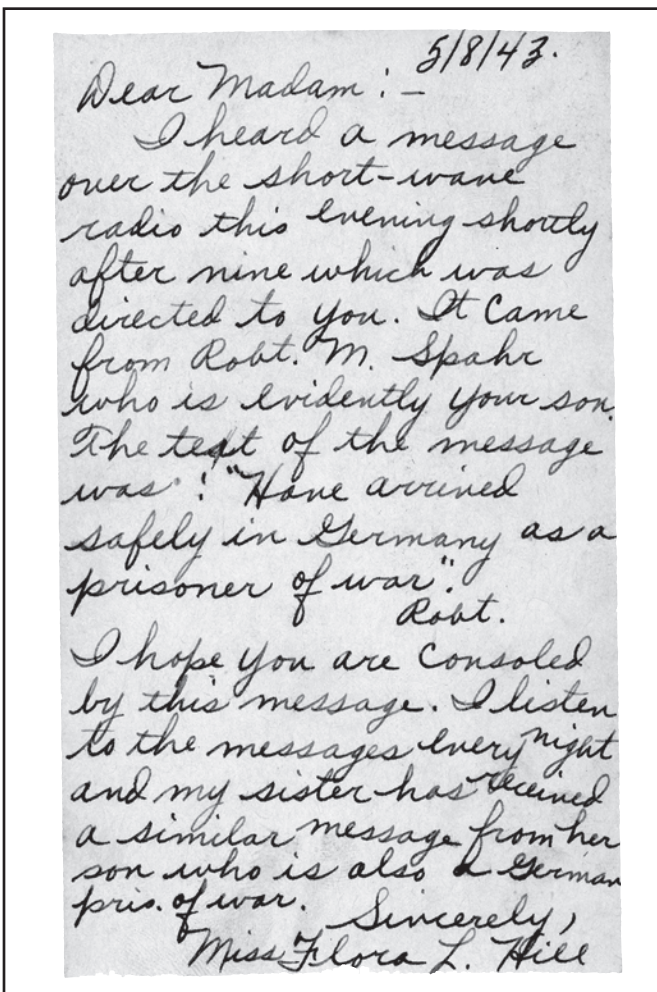 5/8/43.
Dear Madam : -
I heard a message
over the short-wave
radio this evening shortly
after nine which was
directed to you. It came
from Robt. M. Spahr
who is evidently your son.
The text of the message
was : "Have arrived
safely in Germany as a
prisoner of war".
Robt.
I hope you are consoled
by this message. I listen
to the messages every night
and my sister has received
a similar message from her
son who is also a German
pris. of war.
Sincerely,
Miss Flora L. Hill